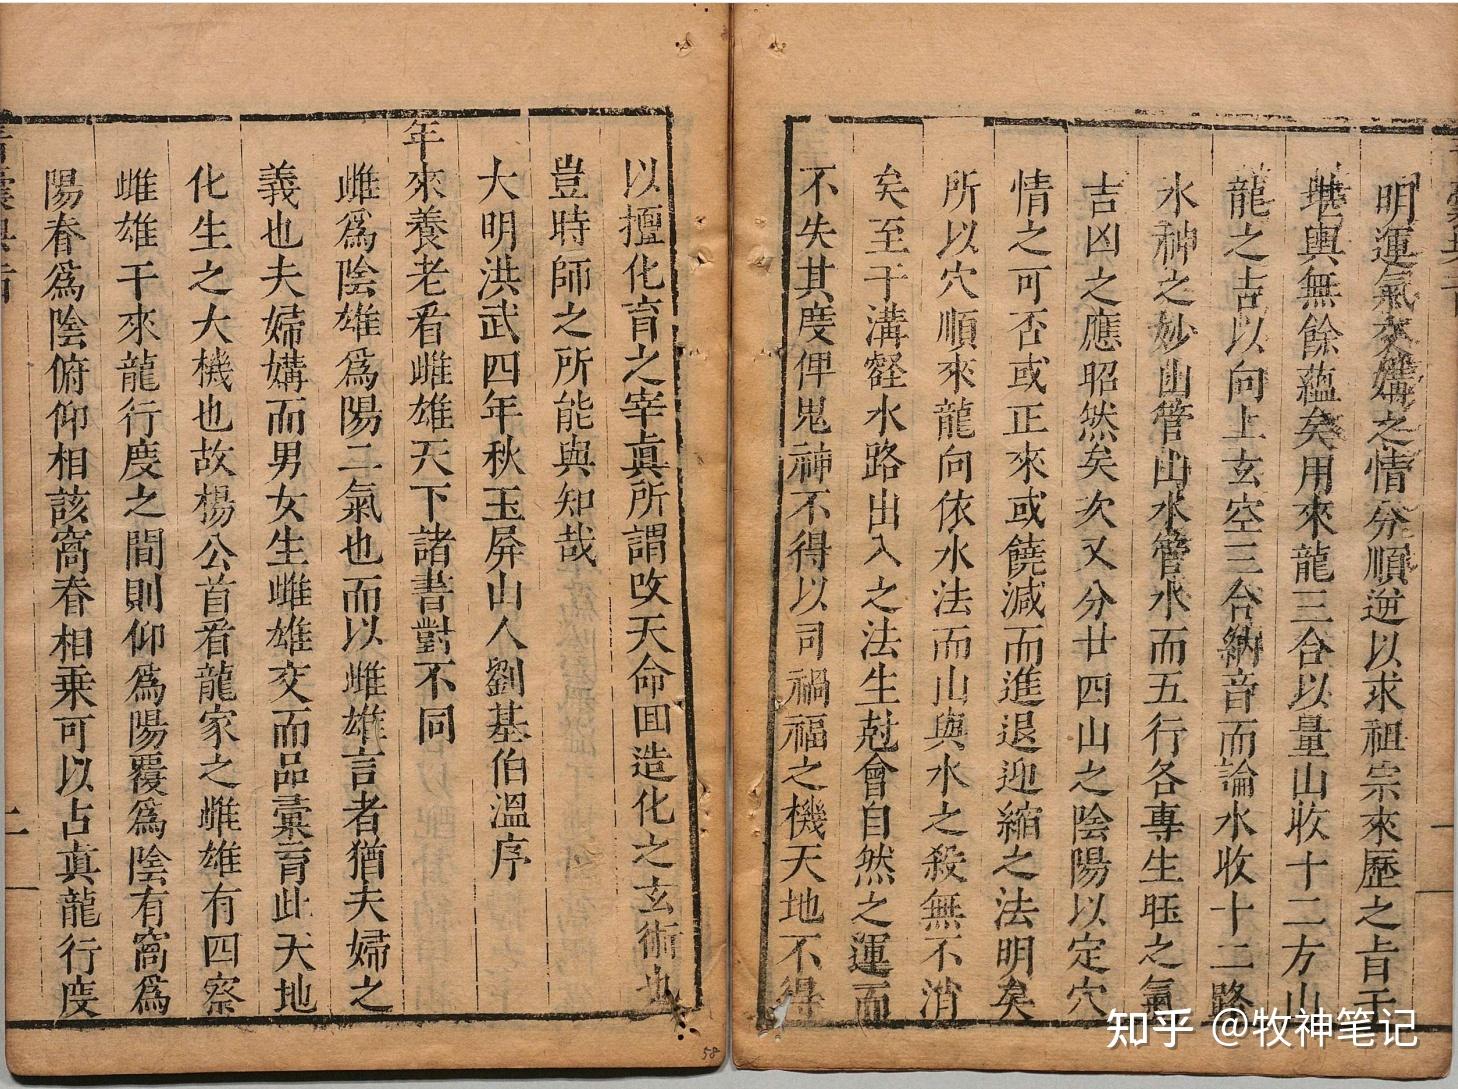 明運氣交媾之情分順逆以求祖宗來歷之旨于
地輿無餘蘊矣用來龍三合以量山收十二方山
龍之吉以向上玄空三合納音而論水收十二路
水神之妙山管山水管水而五行各專生旺之氣
吉凶之應昭然矣次又分廿四山之陰陽以定穴
情之可否或正來或饒減而進退迎縮之法明矣
所以穴順來龍向依水法而山與水之殺無不消
矣至于溝壑水路出入之法生尅會自然之運而
不失其度俾鬼神不得以司禍福之機天地不得
以擅化育之宰真所謂改天命囬造化之玄術也
豈時師之所能與知哉
大明洪武四年秋玉屏山人劉基伯溫序
年來養老看雌雄天下諸書對不同
雌爲陰雄爲陽二氣也而以雌雄言者猶夫婦之
義也夫婦媾而男女生雌雄交而品彙育此天地
化生之大機也故楊公首看龍家之雌雄有四察
雌雄于來龍行度之間則仰爲陽覆爲陰有窩爲
陽脊爲陰俯仰相該窩脊相乗可以占真龍行度
二
58
知乎 @牧神笔记